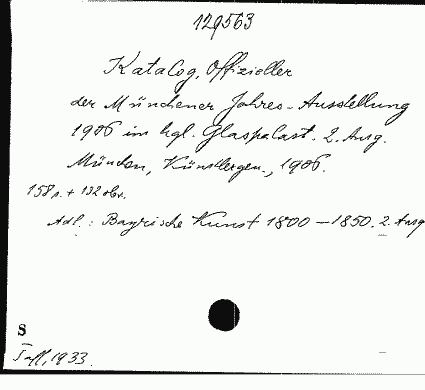 129563
Katalog, Offizieller
der Münchener Jahres-Ausstellung
1906 im kgl. Glaspalast. 2. Ausg.
München, Künstlergen., 1906.
158 s. + 132 obr.
Adl.: Bayrische Kunst 1800-1850. 2. Ausg
S
1933.